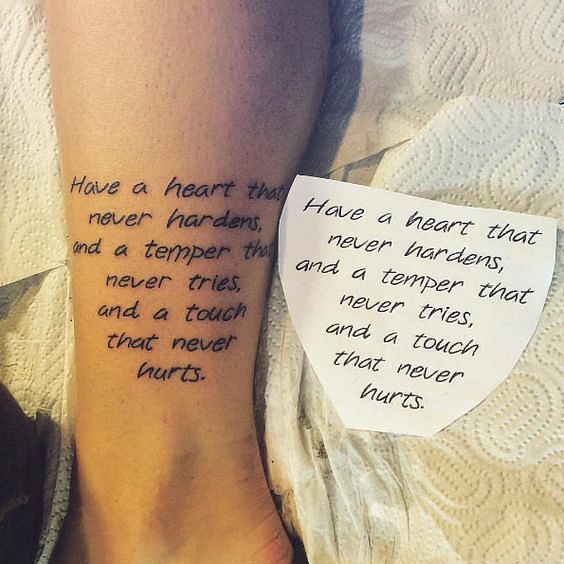 Have a heart that
never hardens,
and a temper that
never tries,
and a touch
that never
hurts.
Have a heart that
never hardens,
and a temper that
never tries,
and a touch
that never
hurts.